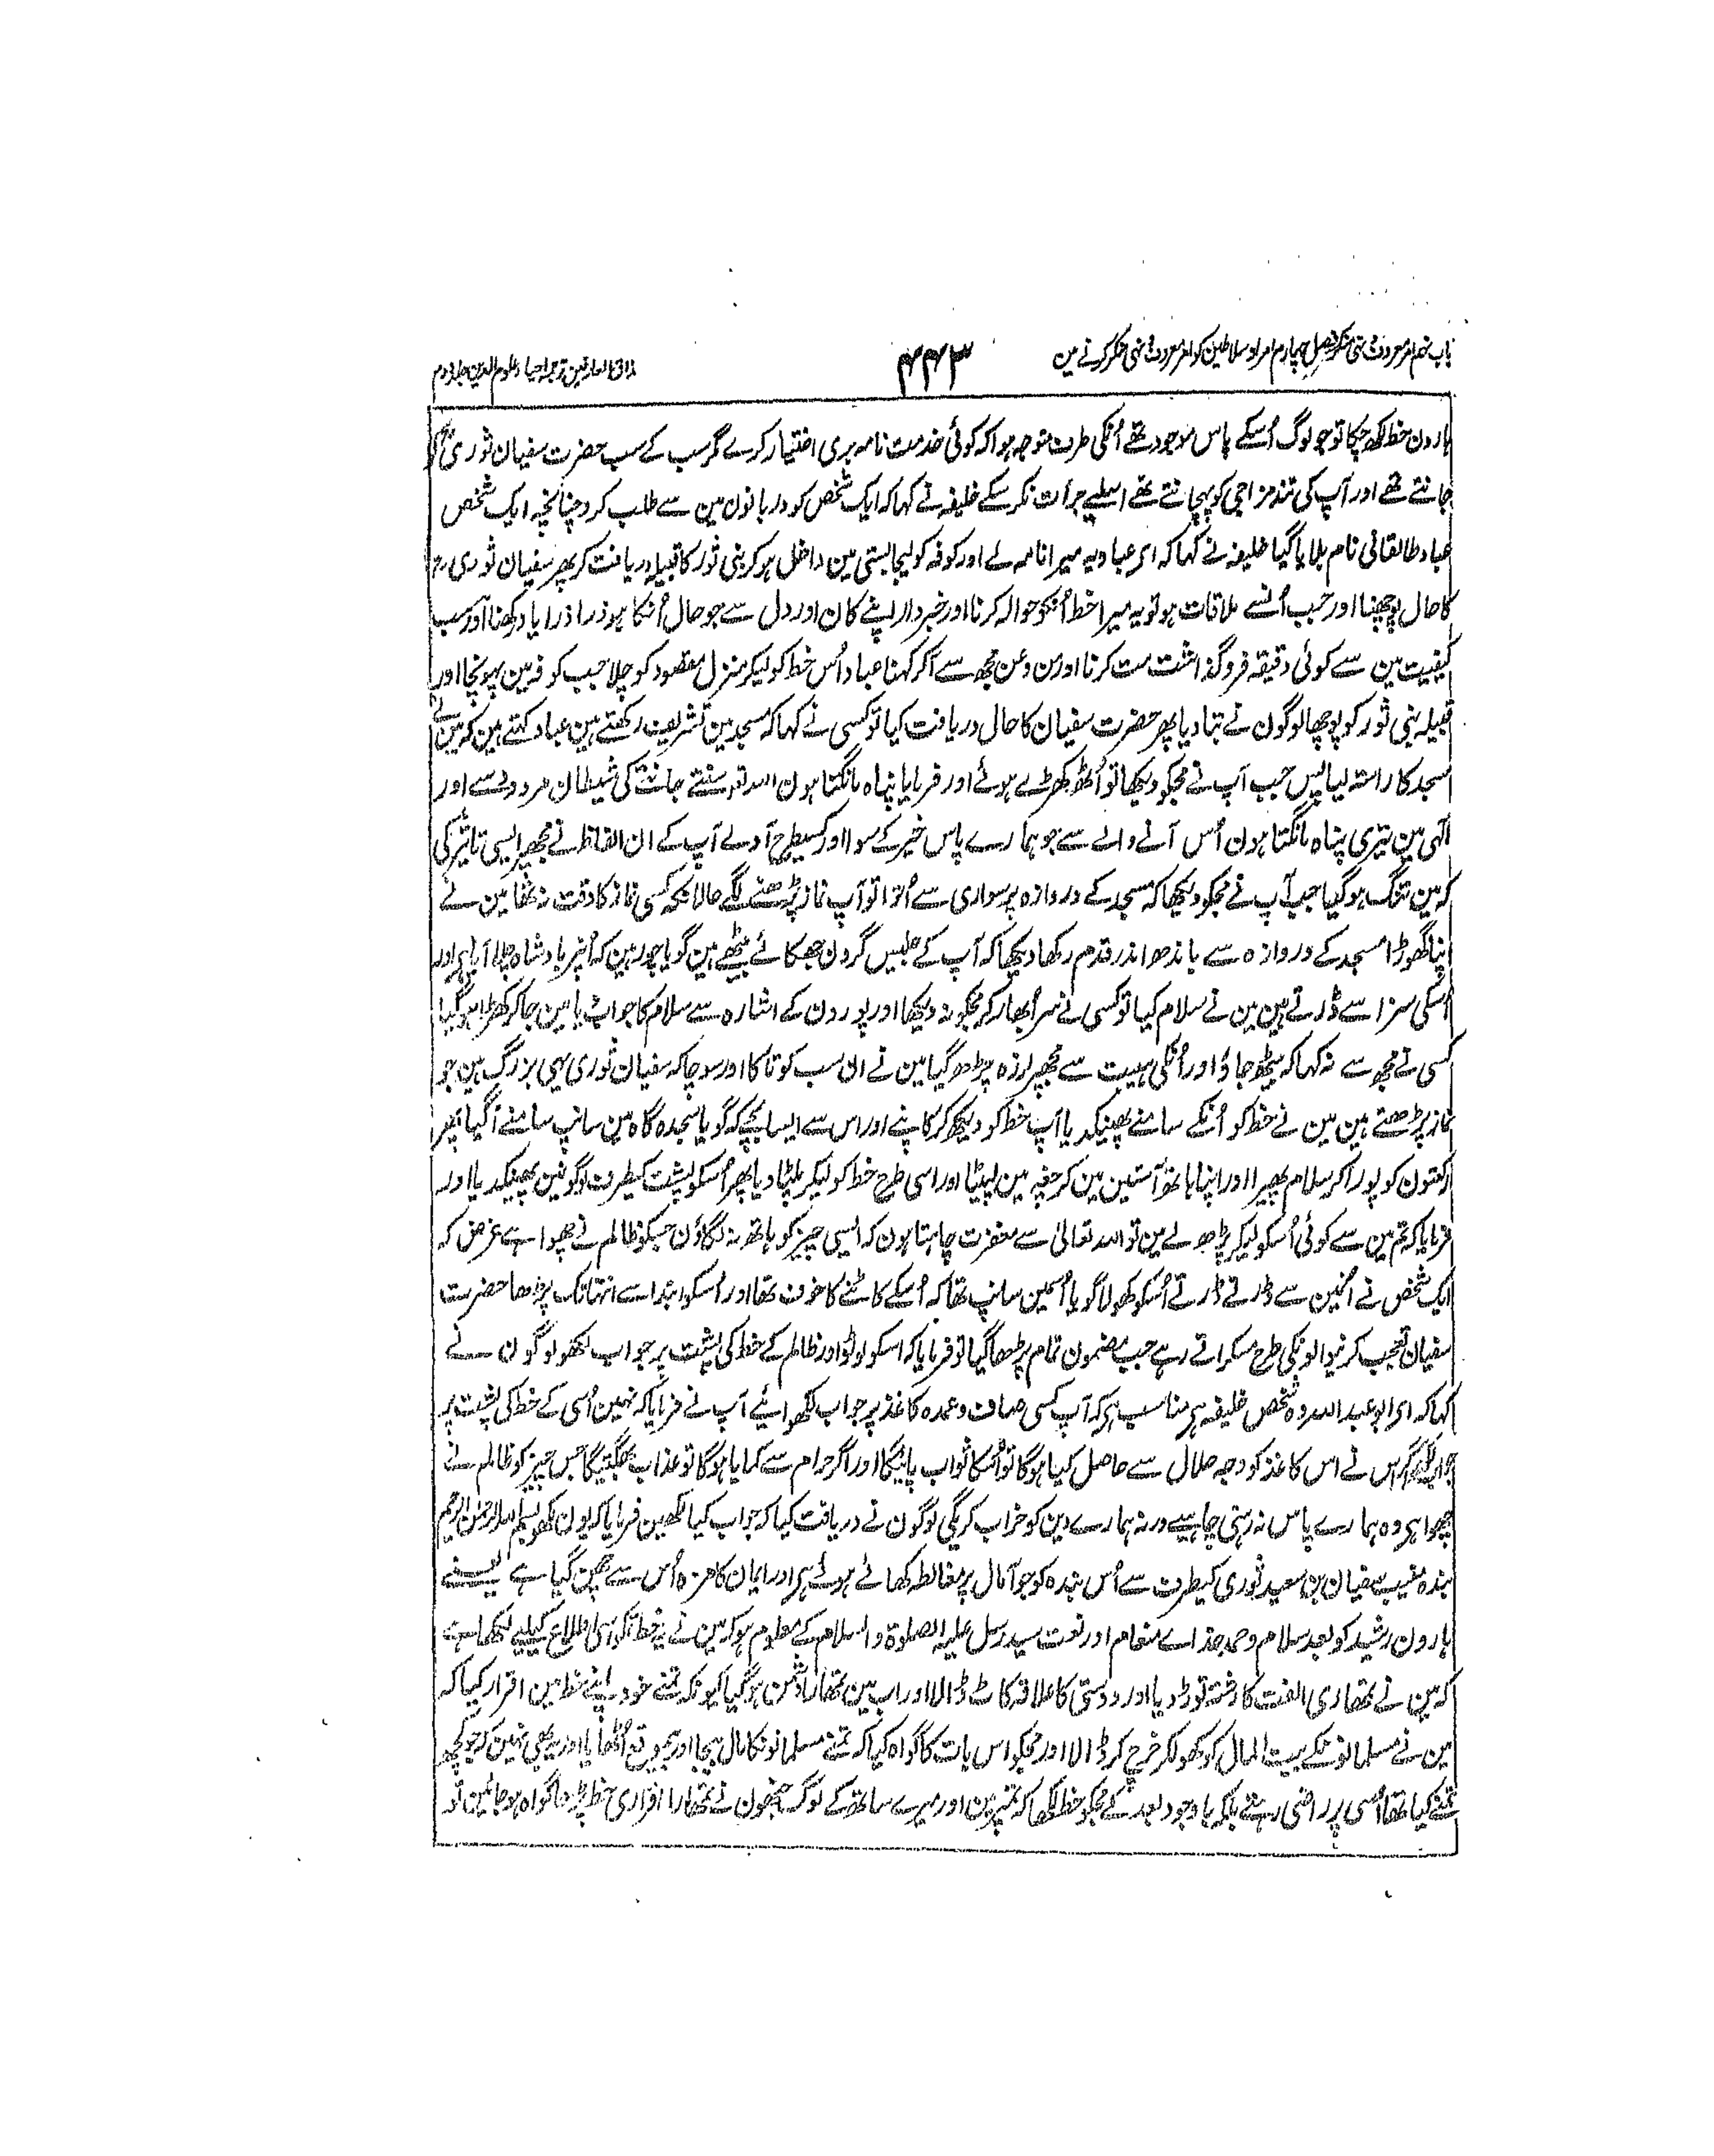 باب نہم امر معروف ونہی منکر فصل چہارم امرا و سلاطین کو امر معروف و نہی منکر کرنے مین
۴۴۳
مذاق العارفین ترجمہ احیاء علوم الدین جلد دوم
ہارون خط لکھ چکا تو جو لوگ اُسکے پاس موجود تھے اُنکی طرف متوجہ ہوا کہ کوئی خدمت نامہ بری اختیار کرے مگر سب کے سب حضرت سفیان ثوری کو
جانتے تھے اور آپ کی تند مزاجی کو پہچانتے تھے اسلیے جرأت نکر سکے خلیفہ نے کہا کہ ایک شخص کو دربانون مین سے طلب کرو چنانچہ ایک شخص
عباد طالقانی نام بلایا گیا خلیفہ نے کہا کہ اے عباد یہ میرا نامہ لے اور کوفہ کو لیجا بستی مین داخل ہو کر بنی ثور کا قبیلہ دریافت کر پھر سفیان ثوری رح
کا حال پوچھنا اور جب اُنسے ملاقات ہو تو یہ میرا خط اُنکو حوالہ کرنا اور خبردار اپنے کان اور دل سے جو حال اُنکا ہو ذرا ذرا یاد رکھنا اور سب
کیفیت مین سے کوئی دقیقہ فروگذاشت مت کرنا اور من و عن مجھ سے آکر کہنا عباد اُس خط کو لیکر منزل مقصود کو چلا جب کوفہ مین پہونچا اور
قبیلہ بنی ثور کو پوچھا لوگون نے بتا دیا پھر حضرت سفیان کا حال دریافت کیا تو کسی نے کہا کہ مسجد مین تشریف رکھتے ہین عباد کہتے ہین کہ مین نے
مسجد کا راستہ لیا پس جب آپ نے مجکو دیکھا تو اُٹھ کھڑے ہوئے اور فرمایا پناہ مانگتا ہون اللہ تعہ سنتے جانتے کی شیطان مردود سے اور
الٰہی مین تیری پناہ مانگتا ہون اُس آنے والے سے جو ہمارے پاس خیر کے سوا اور کسیطرح آوے آپ کے ان الفاظ نے مجھپر ایسی تاثیر کی
کہ مین تنگ ہو گیا جب آپ نے مجکو دیکھا کہ مسجد کے دروازہ پر سواری سے اُترا تو آپ نماز پڑھنے لگے حالانکہ کسی نماز کا وقت نہ تھا مین نے
اپنا گھوڑا مسجد کے دروازہ سے باندھا اندر قدم رکھا دیکھا کہ آپ کے جلیس گردن جھکائے بیٹھے ہین گویا چور ہین کہ اُنپر بادشاہ چلا آیا ہے اور
اُسکی سزا سے ڈرتے ہین مین نے سلام کیا تو کسی نے سر اُبھار کر مجکو نہ دیکھا اور پورون کے اشارہ سے سلام کا جواب دیا مین جا کر کھڑا ہو گیا
کسی نے مجھ سے نہ کہا کہ بیٹھ جاؤ اور اُنکی ہیبت سے مجھپر لرزہ چڑھ گیا مین نے ان سب کو تاکا اور سوچا کہ سفیان ثوری یہی بزرگ ہین جو
نماز پڑھتے ہین مین نے خط کو اُنکے سامنے پھینکدیا آپ خط کو دیکھ کر کانپے اور اس سے ایسا بچے کہ گویا سجدہ گاہ مین سانپ سامنے آگیا پھر
رکعتون کو پورا کر سلام پھیرا اور اپنا ہاتھ آستین مین کر جفہ مین لپیٹا اور اسی طرح خط کو لیکر پلٹا دیا پھر اُسکو پشت کیطرف لوگونمین پھینکدیا اور
فرمایا کہ تم مین سے کوئی اُسکو لیکر پڑھ لے مین تو اللہ تعالیٰ سے مغفرت چاہتا ہون کہ ایسی چیز کو ہاتھ نہ لگاؤن جسکو ظالم نے چھوا ہے غرض کہ
ایک شخص نے اُنمین سے ڈرتے ڈرتے اُسکو کھولا گویا اُسمین سانپ تھا کہ اُسکے کاٹنے کا خوف تھا اور اُسکو ابتدا سے انتہا تک پڑھا حضرت
سفیان تعجب کرنیوالونکی طرح مسکراتے رہے جب مضمون تمام پڑھا گیا تو فرمایا کہ اسکو لوٹو اور ظالم کے خط کی پشت پر جواب لکھو لوگون نے
کہا کہ اے ابو عبد اللہ وہ شخص خلیفہ ہے مناسب ہے کہ آپ کسی صاف و عمدہ کاغذ پر جواب لکھوائیے آپ نے فرمایا کہ نہین اُسی کے خط کی پشت پر
جواب لکھو اگر اُس نے اس کاغذ کو وجہ حلال سے حاصل کیا ہوگا تو اُسکا ثواب پائیگا اور اگر حرام سے کمایا ہوگا تو عذاب بھگتیگا جس چیز کو ظالم نے
چھوا ہے وہ ہمارے پاس نہ رہنی چاہیے ورنہ ہمارے دین کو خراب کریگی لوگون نے دریافت کیا کہ جواب کیا لکھین فرمایا کہ یون لکھو بسم اللہ الرحمٰن الرحیم
بندہ سفیان بن سعید ثوری کیطرف سے اُس بندہ کو جو آمال پر مغالطہ کھائے ہوئے ہے اور ایمان کا مزہ اُس سے چھن گیا ہے یعنے
ہارون رشید کو بعد سلام و حمد خداے منعام اور نعت سید رسل علیہ الصلوٰۃ والسلام کے معلوم ہو کہ مین نے یہ خط تمکو اسی اطلاع کیلیے لکھا ہے
کہ مین نے تمھاری الفت کا رشتہ توڑ دیا اور دوستی کا علاقہ کاٹ ڈالا اور اب مین تمھارا دشمن ہو گیا کیونکہ تمنے خود اپنے خط مین اقرار کیا کہ
مین نے مسلمانونکے بیت المال کو کھولکر خرچ کر ڈالا اور مجکو اس بات کا گواہ کیا کہ تمنے مسلمانونکا مال بیجا اور بیموقع اُٹھایا اور یہ بھی نہین کہ جو کچھ
تمنے کیا تھا اُسی پر راضی رہتے بلکہ باوجود بعد کے مجکو خط لکھا کہ تمپر مین اور میرے ساتھ کے لوگ جنھون نے تمھارا اقراری خط پڑھا گواہ ہو جائین تو